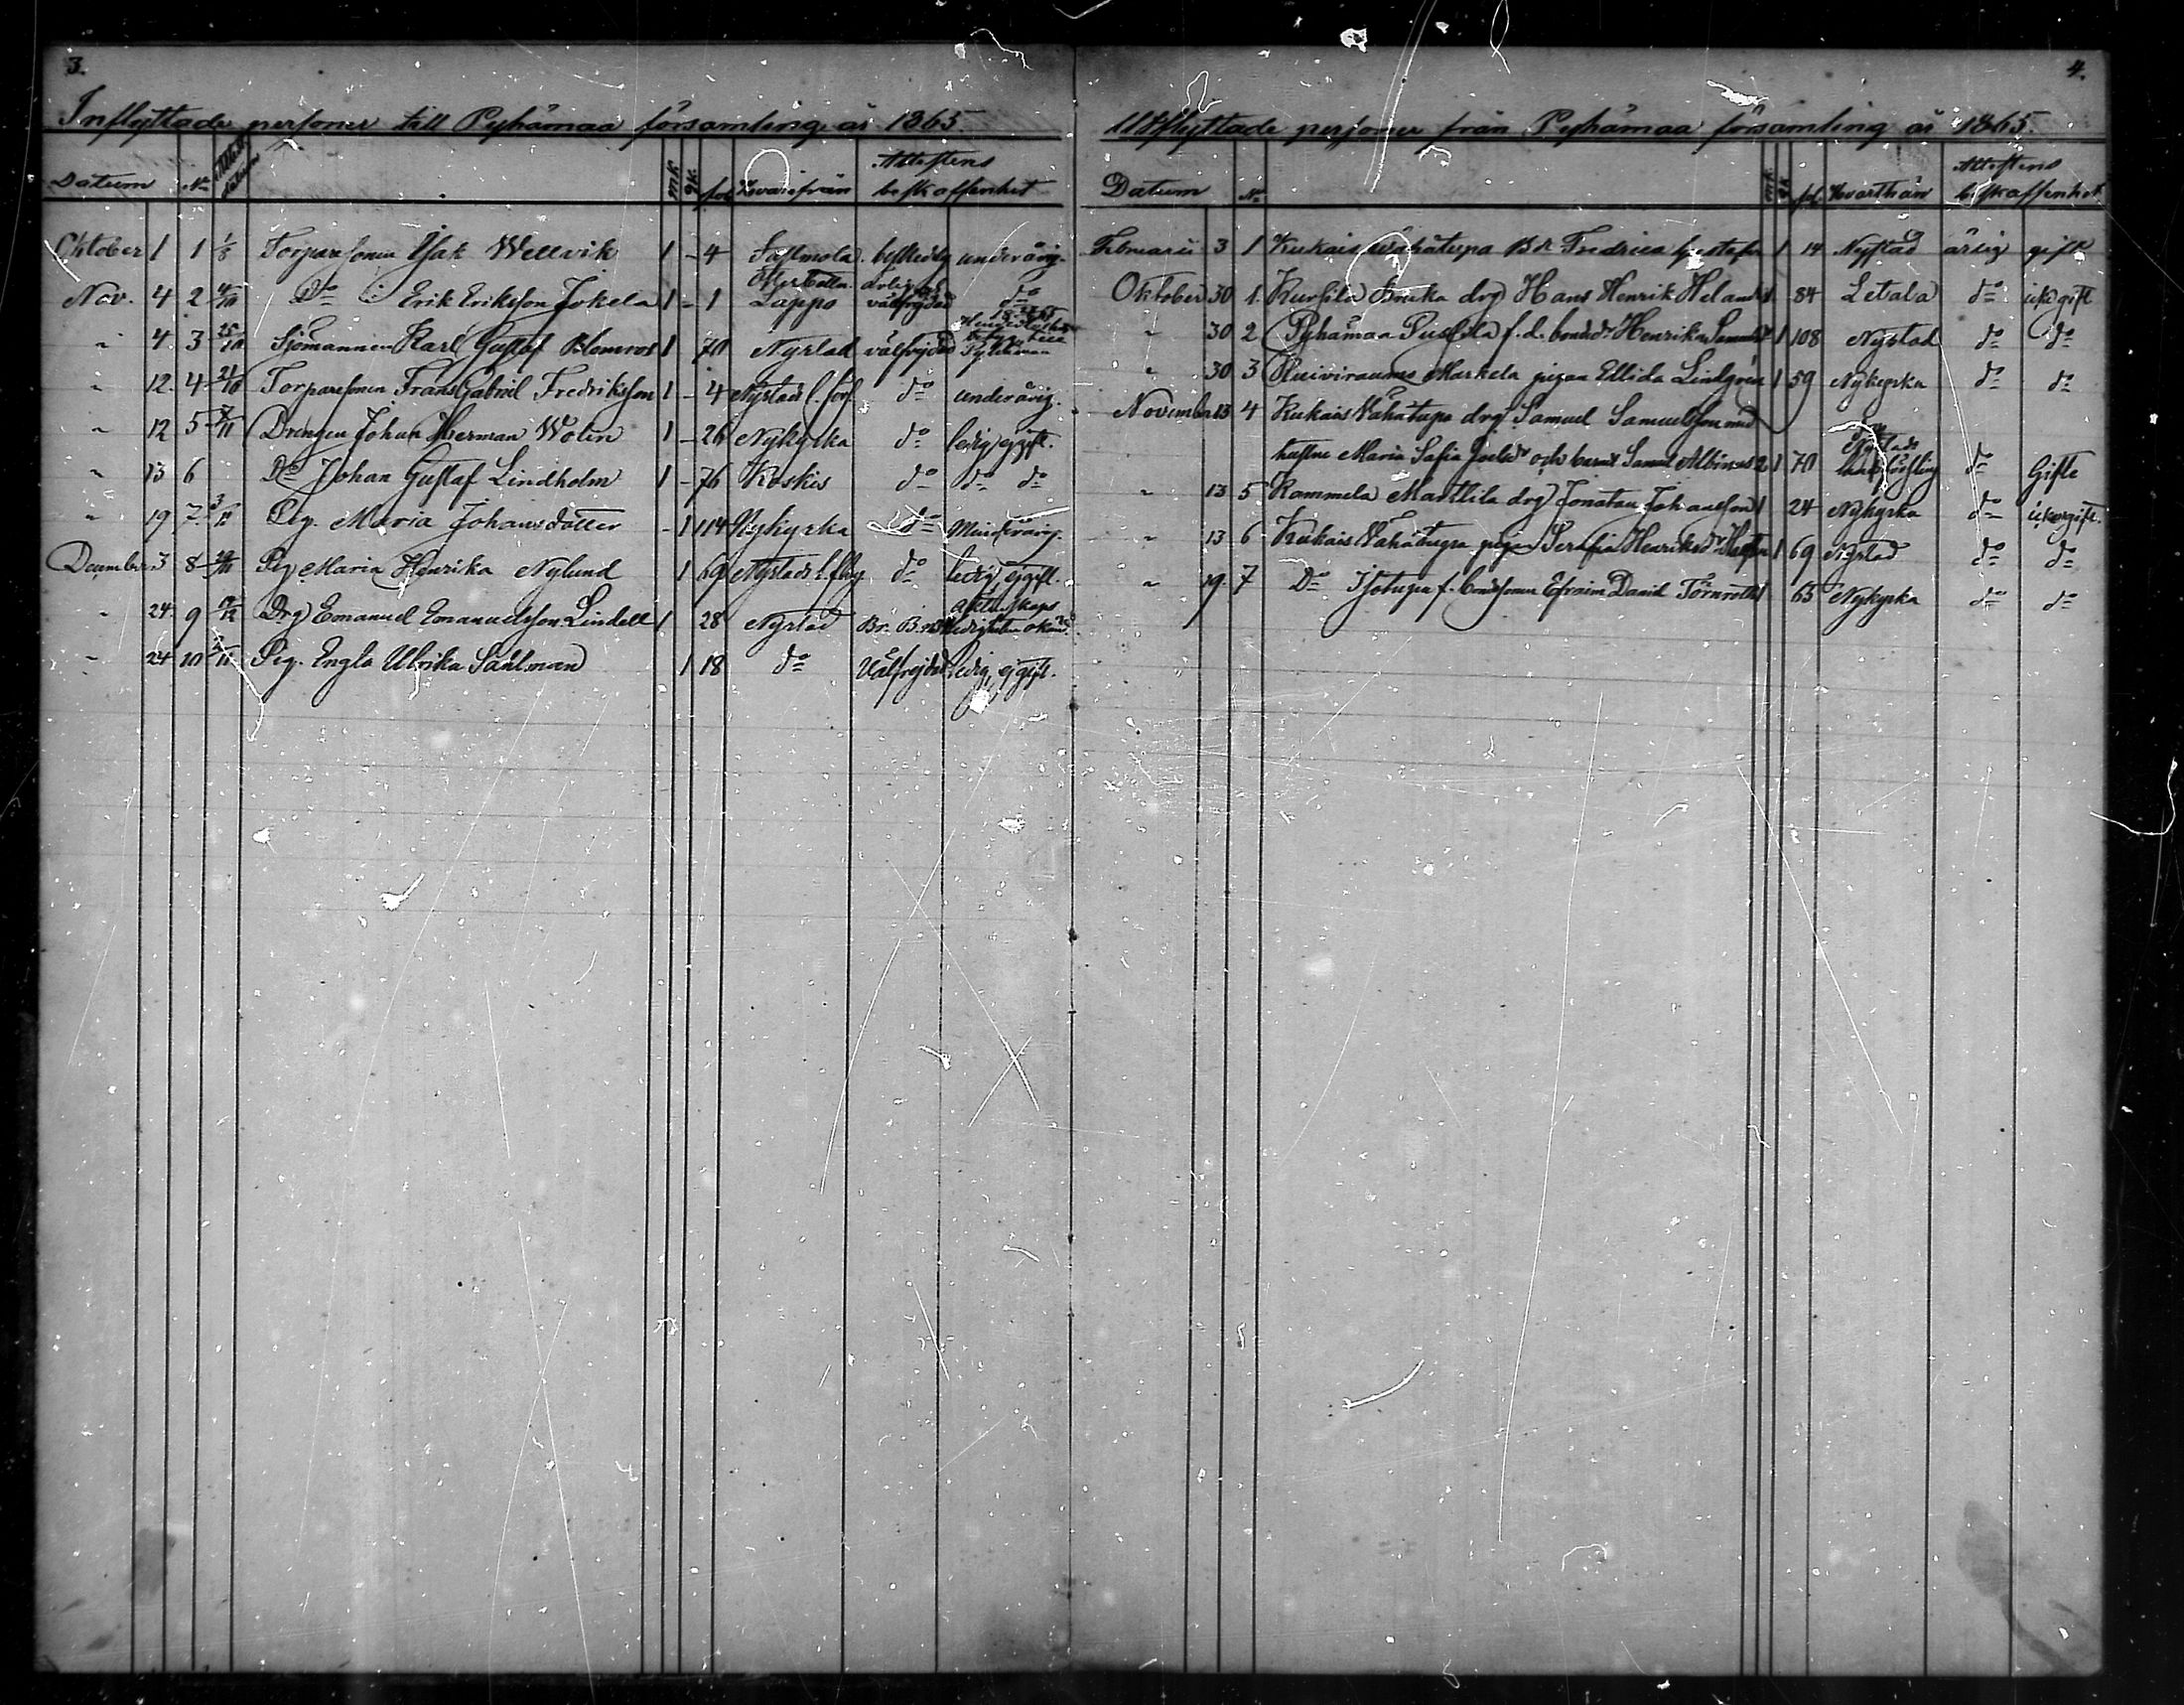 3.
Inflyttade personer till Pyhämaa församling år 1865.
Datum No Attest datum mk qk fol Hvarifrån Attestens beskaffenhet
Oktober 1 1 1/8 Torparesonen Isak Wellvik 1 - 4 Sastmola beskedlig underårig
Nov. 4 2 Do Erik Eriksson Jokela 1 - 1 Österbotten Lappo ärlig och välfrejdad do
" 4. 3 25/10 Sjömannen Karl Gustaf Blomros 1 70 Nystad välfrejdad
" 12. 4 21/10 Torparesonen Frans Gabriel Fredriksson 1 - 4 Nystads l. förs. do underårig.
" 12 5 Drengen Johan Herman Wolin 1 - 26 Nykyrka do ledig ej gift.
" 13 6 Do Johan Gustaf Lindholm 1 - 76 Koskis do do do
" 19 7 Pig. Maria Johansdotter - 1 114 Nykyrka do Minderårig.
December 3 8 Pig Maria Henrika Nylund 1 69 Nystads l. flg do ledig ej gift.
" 24. 9 Drg Emanuel Emanuelsson Lindell 1 28 Nystad Br. äktenskaps ledigheten okänd
" 24 10 Pig. Engla Ulrika Sahlman 1 18 do Välfrejdad ledig, ej gift.
4.
Utflyttade personer från Pyhämaa församling år 1865.
Datum No mk qk fol. Hvarthän Attestens beskaffenhet
Februarii 3 1 Kukais Wähätupa Fredrica Gustafs 1 14 Nystad ärlig gift
Oktober 30 1. Kursila drg Hans Henrik Helander 84 Letala do icke gift
" 30 2 Pyhämaa f. d. bondedr Henrika 1 108 Nystad do do
" 30 3 Markela pigan Ellida Lindgrén 1 59 Nykyrka do do
November 13 4 Kukais Vähätupa drg Samuel Samuelsson med
hustru Maria Sofia och barnet Samuel Albinus 2 1 70 Nystads do Gifte
" 13 5 Kammela Marttila drg Jonatan Johansson 1 24 Nykyrka do icke gift.
" 13 6 Kukais Vähätupa pigan Serafia Henriksdr 1 69 Nystad do do
" 19. 7 Do Isotupa f. bondsonen Efraim Daniel Törnroth 1 65 Nykyrka do do